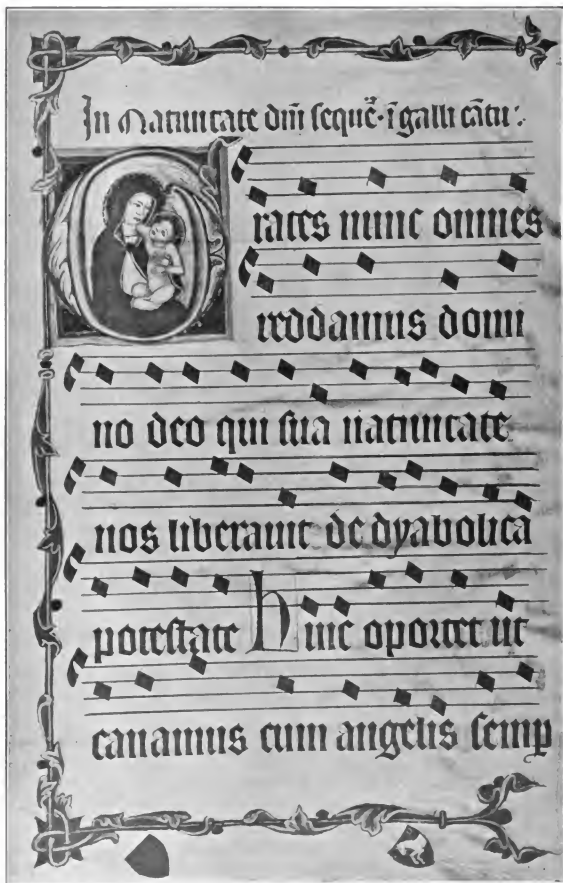 In Natiuitate dñi sequē. ī galli cātu:
Grates nunc omnes
reddamus domi
no deo qui sua natiuitate
nos liberauit de dyabolica
potestate huic oportet ut
canamus cum angelis semꝑ